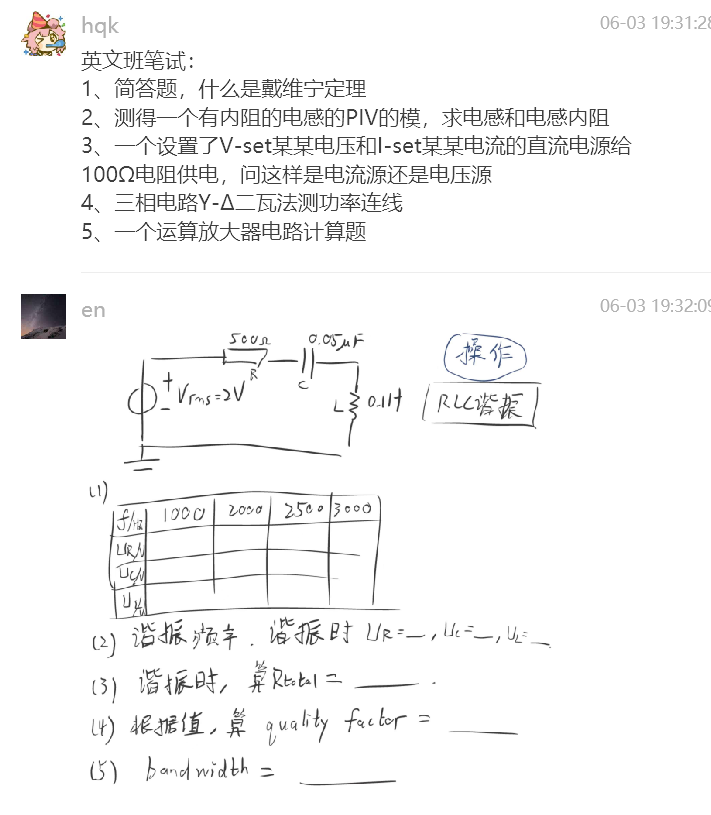 hqk
06-03 19:31:28
英文班笔试：
1、简答题，什么是戴维宁定理
2、测得一个有内阻的电感的PIV的模，求电感和电感内阻
3、一个设置了V-set某某电压和I-set某某电流的直流电源给
100Ω电阻供电，问这样是电流源还是电压源
4、三相电路Y-Δ二瓦法测功率连线
5、一个运算放大器电路计算题
en
06-03 19:32:09
500Ω
0.05μF
操作
R
C
+
Vrms=2V
-
L
0.1H
RLC谐振
(1)
f/Hz 1000 2000 2500 3000
UR/V
UC/V
UL/V
(2) 谐振频率. 谐振时 UR=_, Uc=_, UL=_
(3) 谐振时, 算Rtotal = ____.
(4) 根据值, 算 quality factor = ____
(5) bandwidth = ____